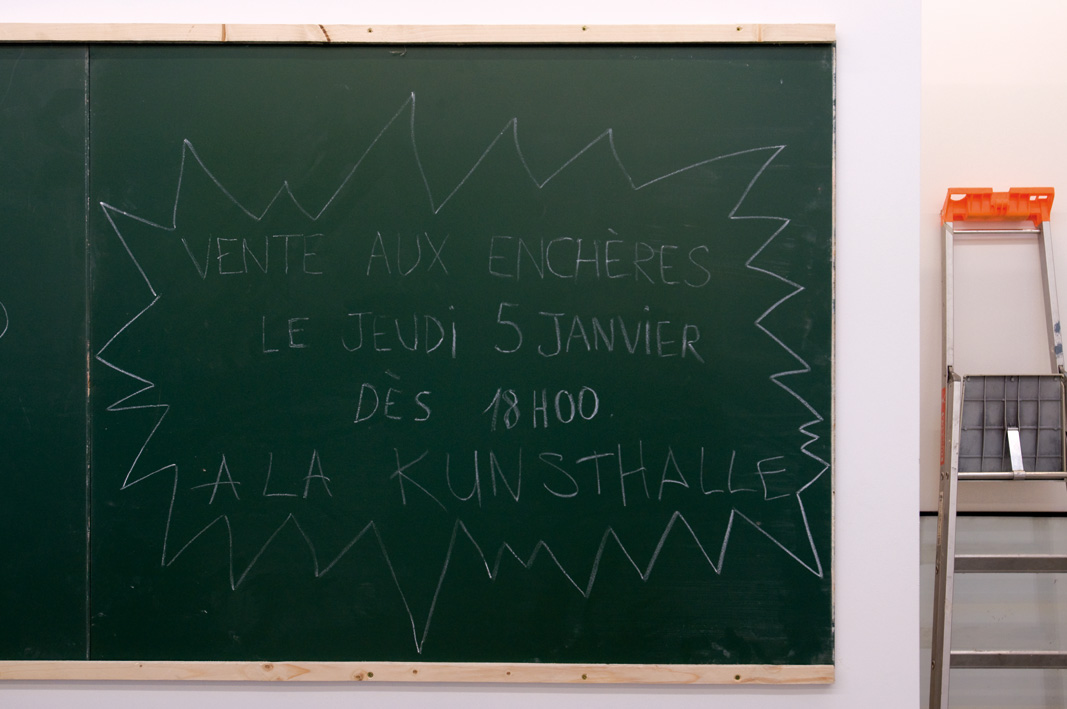 VENTE AUX ENCHÈRES
LE JEUDi 5 JANViER
DÈS 18H00.
A LA KUNSTHALLE